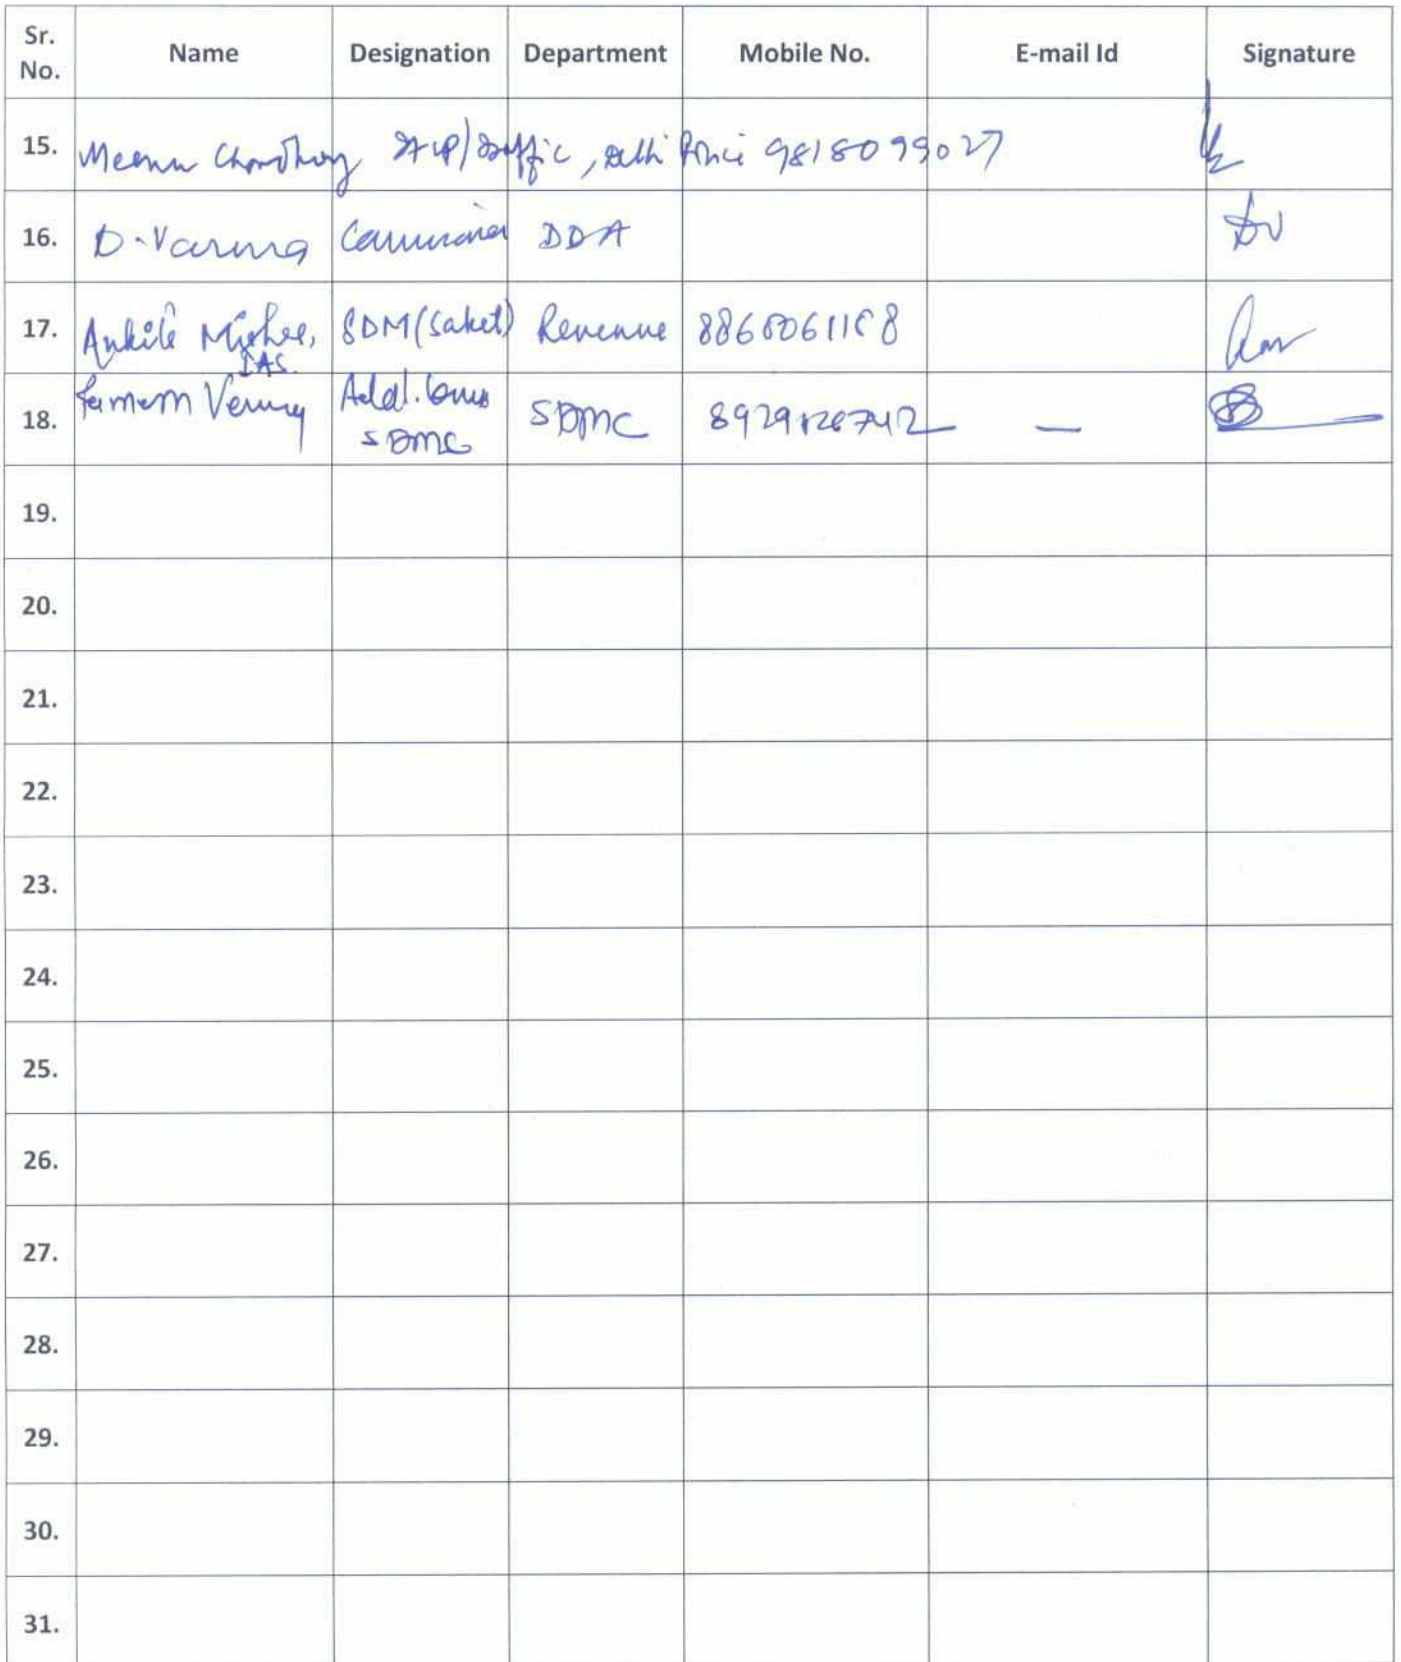 Sr. No. Name Designation Department Mobile No. E-mail Id Signature
15. Meenu Chowdhary /Traffic, Delhi Police 9818099027
16. D. Varma DDA
17. Ankita Mishra, IAS. SDM (Saket) Revenue
18. Verma Addl. Comm SDMC SDMC —
19.
20.
21.
22.
23.
24.
25.
26.
27.
28.
29.
30.
31.